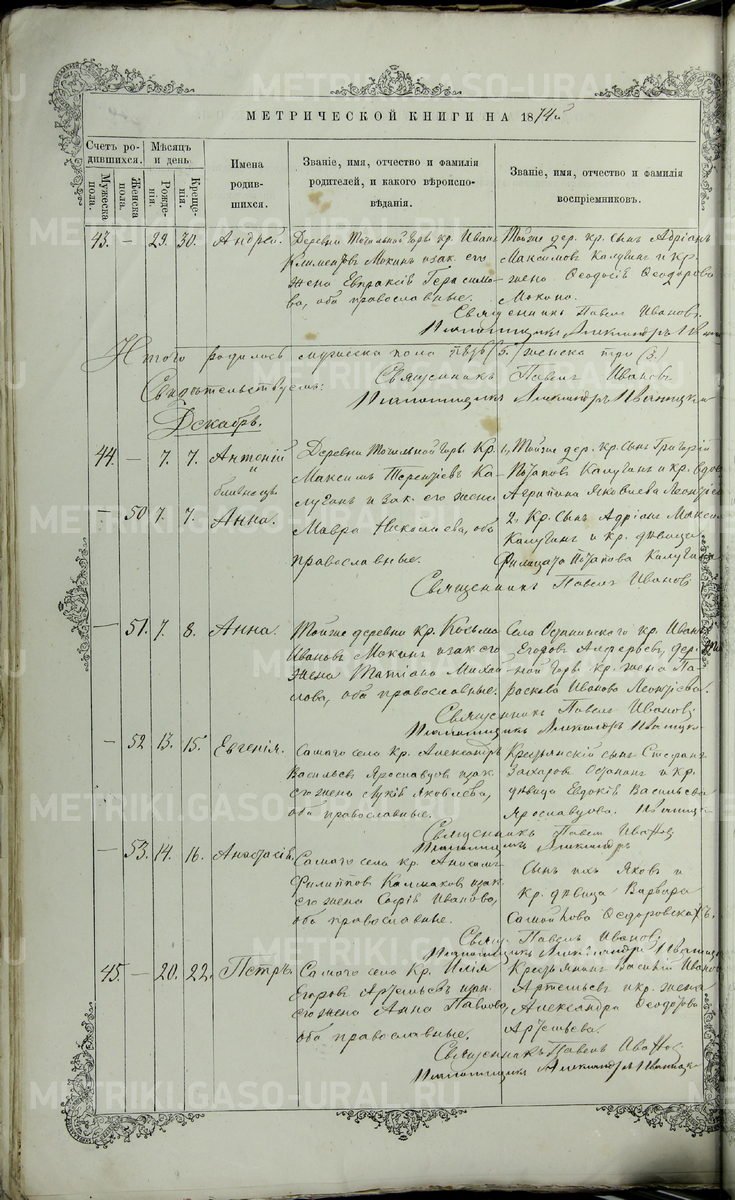 МЕТРИЧЕСКОЙ КНИГИ НА 1874й
Счетъ ро-
дившихся.
Мѣсяцъ
и день
Мужеска
пола.
Женска
пола.
Рожде-
нія.
Креще-
нія.
Имена
родив-
шихся.
Званіе, имя, отчество и фамилія
родителей, и какого вѣроиспо-
вѣданія.
Званіе, имя, отчество и фамилія
воспріемниковъ.
43. — 29. 30. Андрей.
Деревни Точильной Горы кр. Иванъ
Климентовъ Мокинъ и зак. его
жена Евпраксія Герасимо-
ва, оба православные.
Тойже дер. кр. сынъ Адріанъ
Максимовъ Калугинъ и кр.
жена Ѳеодосія Ѳеодорова
Мокина.
Священникъ Павелъ Ивановъ.
Псаломщикъ Александръ
Итого родилось мужеска пола пять (5.) женска три (3.)
Свидѣтельствуемъ:
Священникъ Павелъ Ивановъ
Псаломщикъ Александръ Иваницкій
Декабрь.
44. — 7. 7. Антоній
и
близнецъ
— 50 7. 7. Анна.
Деревни Точильной Горы Кр.
Максимъ Терентіевъ Ка-
лугинъ и зак. его жена
Мавра Николаева, оба
православные.
1, Тойже дер. кр. сынъ Григорій
Потаповъ Калугинъ и кр.
Агрипина Яковлева
2. Кр. сынъ Адріанъ
Калугинъ и кр. дѣвица
Потапова
Священникъ Павелъ Ивановъ
— 51. 7. 8. Анна.
Тойже деревни кр. Косьма
Ивановъ Мокинъ и зак. его
жена Татіана Михай-
лова, оба православные.
Села Останинскаго кр. Иванъ
Егоровъ Алферьевъ, дер.
ной Горы кр. жена Па-
раскева Иванова Леонтіева.
Священникъ Павелъ Ивановъ.
Псаломщикъ Александръ Иваницкій
— 52 13. 15. Евгенія.
Самого села кр. Александръ
Васильевъ Ярославцовъ и зак.
его жена Лукія Яковлева,
оба православные.
Крестьянскій сынъ Стефанъ
Захаровъ Останинъ и кр.
дѣвица Евдокія Васильева
Ярославцова.
Священникъ Павелъ Ивановъ
Псаломщикъ Александръ
— 53. 14. 16. Анастасія.
Самого села кр. Анисимъ
Филипповъ Калмаковъ и зак.
его жена Софія Иванова,
оба православные.
Сынъ ихъ Яковъ и
кр. дѣвица Варвара
Самойлова
Свящ. Павелъ Ивановъ
Псаломщикъ Александръ
45. — 20. 22. Петръ.
Самого села кр. Илія
Егоровъ Артемьевъ и зак.
его жена Анна Павлова,
оба православные.
Крестьянинъ Василій
Артемьевъ и кр. жена
Александра Ѳеодотова
Артемьева.
Священникъ Павелъ Ивановъ
Псаломщикъ Александръ Иваницкій
METRIKI.GASO-URAL.RU